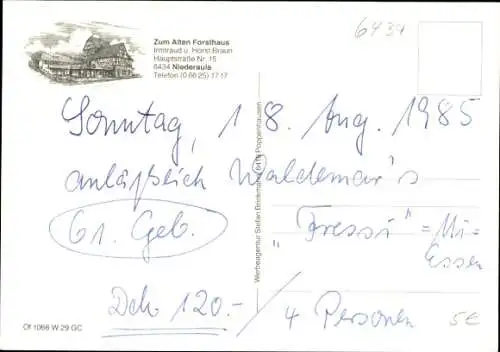 Zum Alten Forsthaus
Irmtraud u. Horst Braun
Hauptstraße Nr. 15
6434 Niederaula
Telefon (0 66 25) 17 17
6434
Sonntag, 18. Aug. 1985
anläßlich Waldemar's
61. Geb.
"Fressi" = Mi =
Essen
Dch 120.- / 4 Personen
5€
Werbeagentur Stefan Brinkmann, 6416 Poppenhausen
Of 1066 W 29 GC